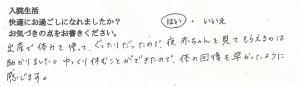 入院生活
快適にお過ごしになれましたか？ はい ・ いいえ
お気づきの点をお書きください。
出産で体力を使って、ぐったりだったので、夜赤ちゃんを見てもらえるのは
助かりました。ゆっくり休むことができたので、体の回復も早かったように
感じます。